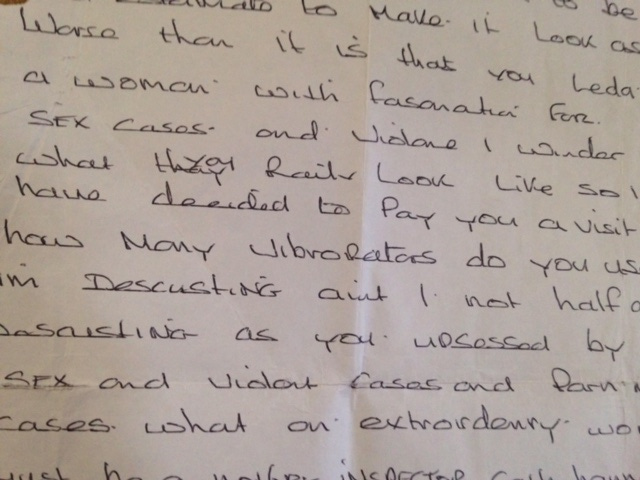 to make it Look as
Worse than it is that you Leda
a woman with fasonation For
SEX Cases. and Violone I Winder
what they Raily Look Like so I
have decided to Pay you a visit
how Many VibroRators do you us
im DescustiNG aint I not half a
DasgustiNG as you. upsessed by
SEX and Violont Cases and Parn
cases. what on extrordenry wo
INSPECTOR